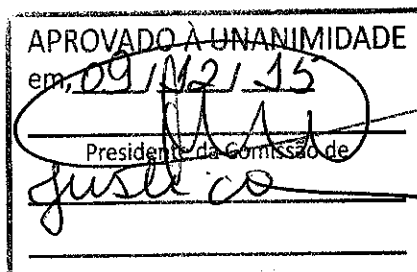 APROVADO À UNANIMIDADE
em, 09/12/15
Presidente da Comissão de
Justiça